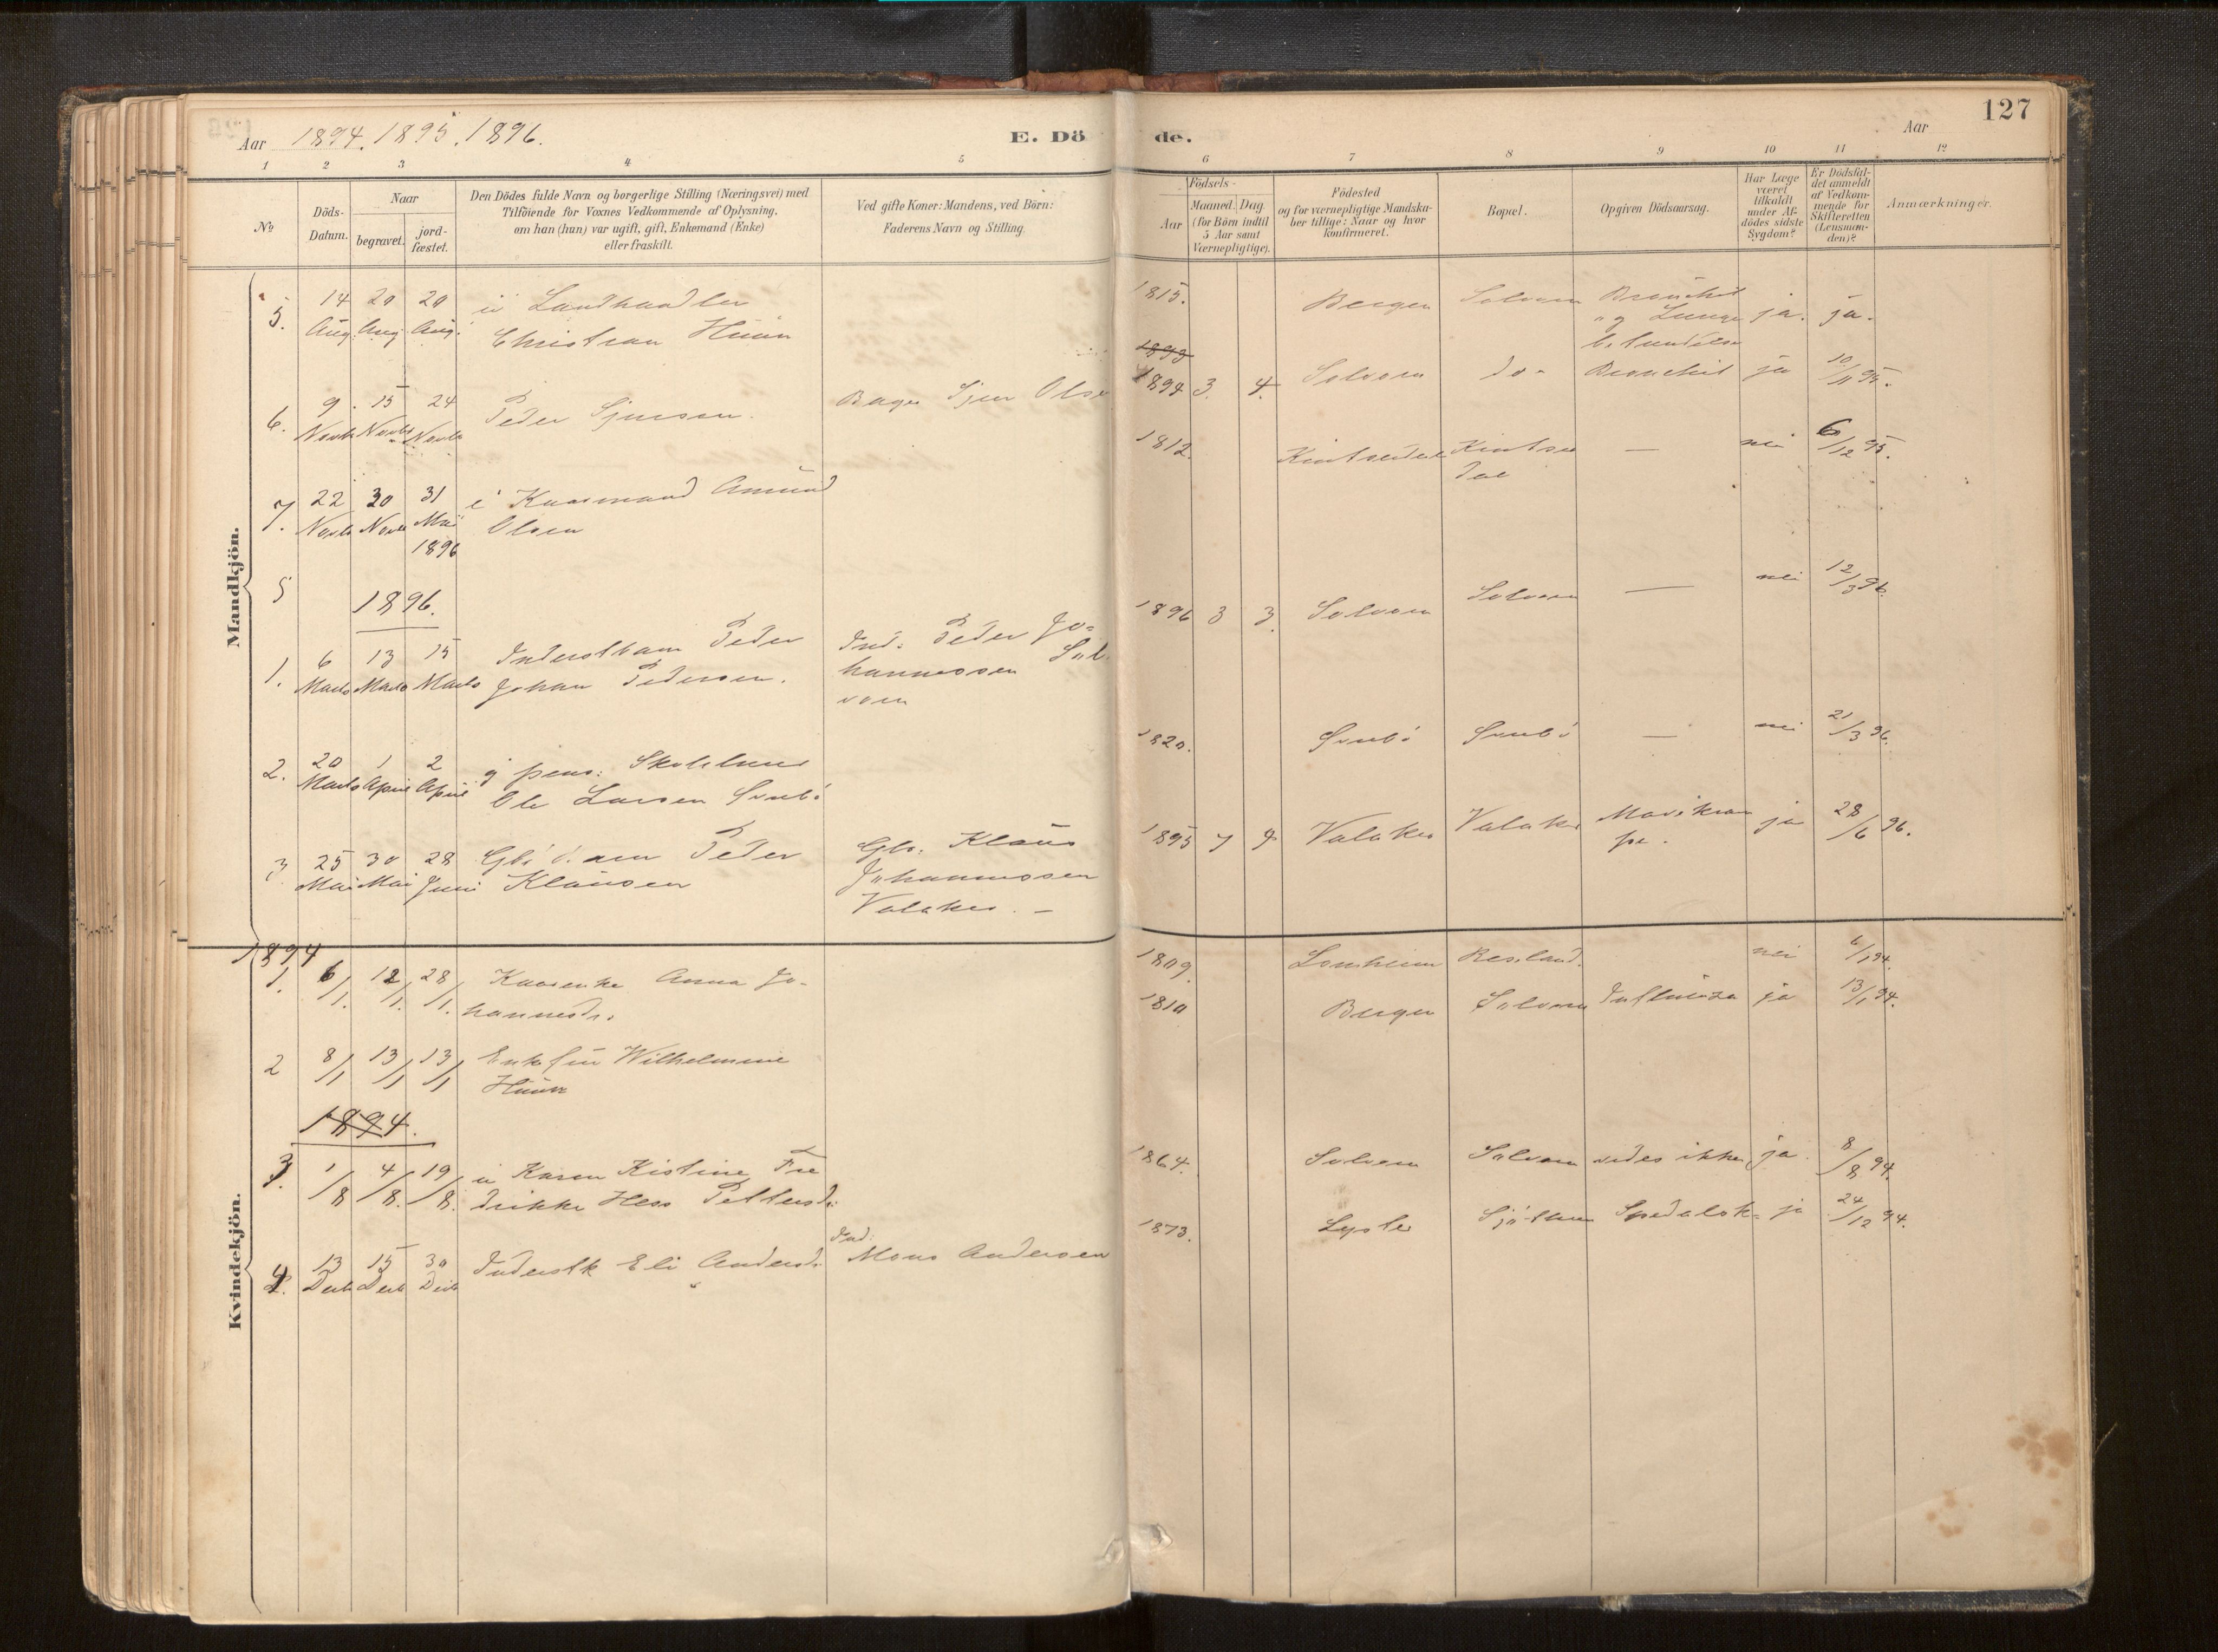 127
Aar 1894. 1895. 1896.
E. Dö
de.
Aar
1 2 3 4 5 6 7 8 9 10 11 12
No
Döds-
Datum.
Naar
begravet.
jord-
fæstet.
Den Dödes fulde Navn og borgerlige Stilling (Næringsvei) med
Tilföiende for Voxnes Vedkommende af Oplysning,
om han (hun) var ugift, gift, Enkemand (Enke)
eller fraskilt.
Ved gifte Koner: Mandens, ved Börn:
Faderens Navn og Stilling.
Födsels-
Aar
Maaned. Dag
(for Börn indtil
5 Aar samt
Værnepligtige).
Födested
og for værnepligtige Mandska-
ber tillige: Naar og hvor
konfirmeret.
Bopæl.
Opgiven Dödsaarsag.
Har Læge
været
tilkaldt
under Af-
dödes sidste
Sygdom?
Er Dödsfal-
det anmeldt
af Vedkom-
mende for
Skifteretten
(Lensman-
den)?
Anmærkninger.
Mandkjön.
5. 14 20 20 Landhandler 1815. Bergen Solvorn Bronchit ja. ja.
Aug. Aug. Aug. Christian og Lunge
1893
6. 9. 15 24 Peder Sjursen. Bager Sjur Olse 1894 3. 4. Solvorn do. Bronchit ja 10/11 95.
Novb Novb Novb
7. 22 30 31 Kaarmand Amund 1812. nei 6/12 95.
Novb Novb Mai Olsen
1896
5
1896.
1. 6 13 15 Peder Ind: Peder Jo= 1896 3 3. Solvorn Solvorn — nei 12/3 96.
Marts Marts Marts Johan Pedersen. hannessen Sol
vorn
2. 20 1 2 g pens: 1820. — nei 21/3 96.
Marts April April Ole Larsen
3. 25 30 28 Peder Gbr: Klaus 1895 7 9 Valaker Valaker ja 28/6 96.
Mai Mai Juni Klausen Johannessen
Valaker. —
Kvindekjön.
1894
1. 6/1. 12/1. 28/1. Anna Jo- 1809. nei 6/1 94.
hannesdr.
2 8/1 13/1 13/1 Wilhelmine 1810 Bergen Solvorn Influenza ja 13/1 94.
1894.
3. 1/8 4/8. 19/8. u Karen Kistine Fre 1864. Solvorn Solvorn vides ikke ja. 8/8 94.
drikke Hess Pettersd:
4. 13 15 30 Eli Andersd. Ind: Mons Andersen 1873. Lyster Spedalsk= ja 24/12 94.
Decb Decb Decb